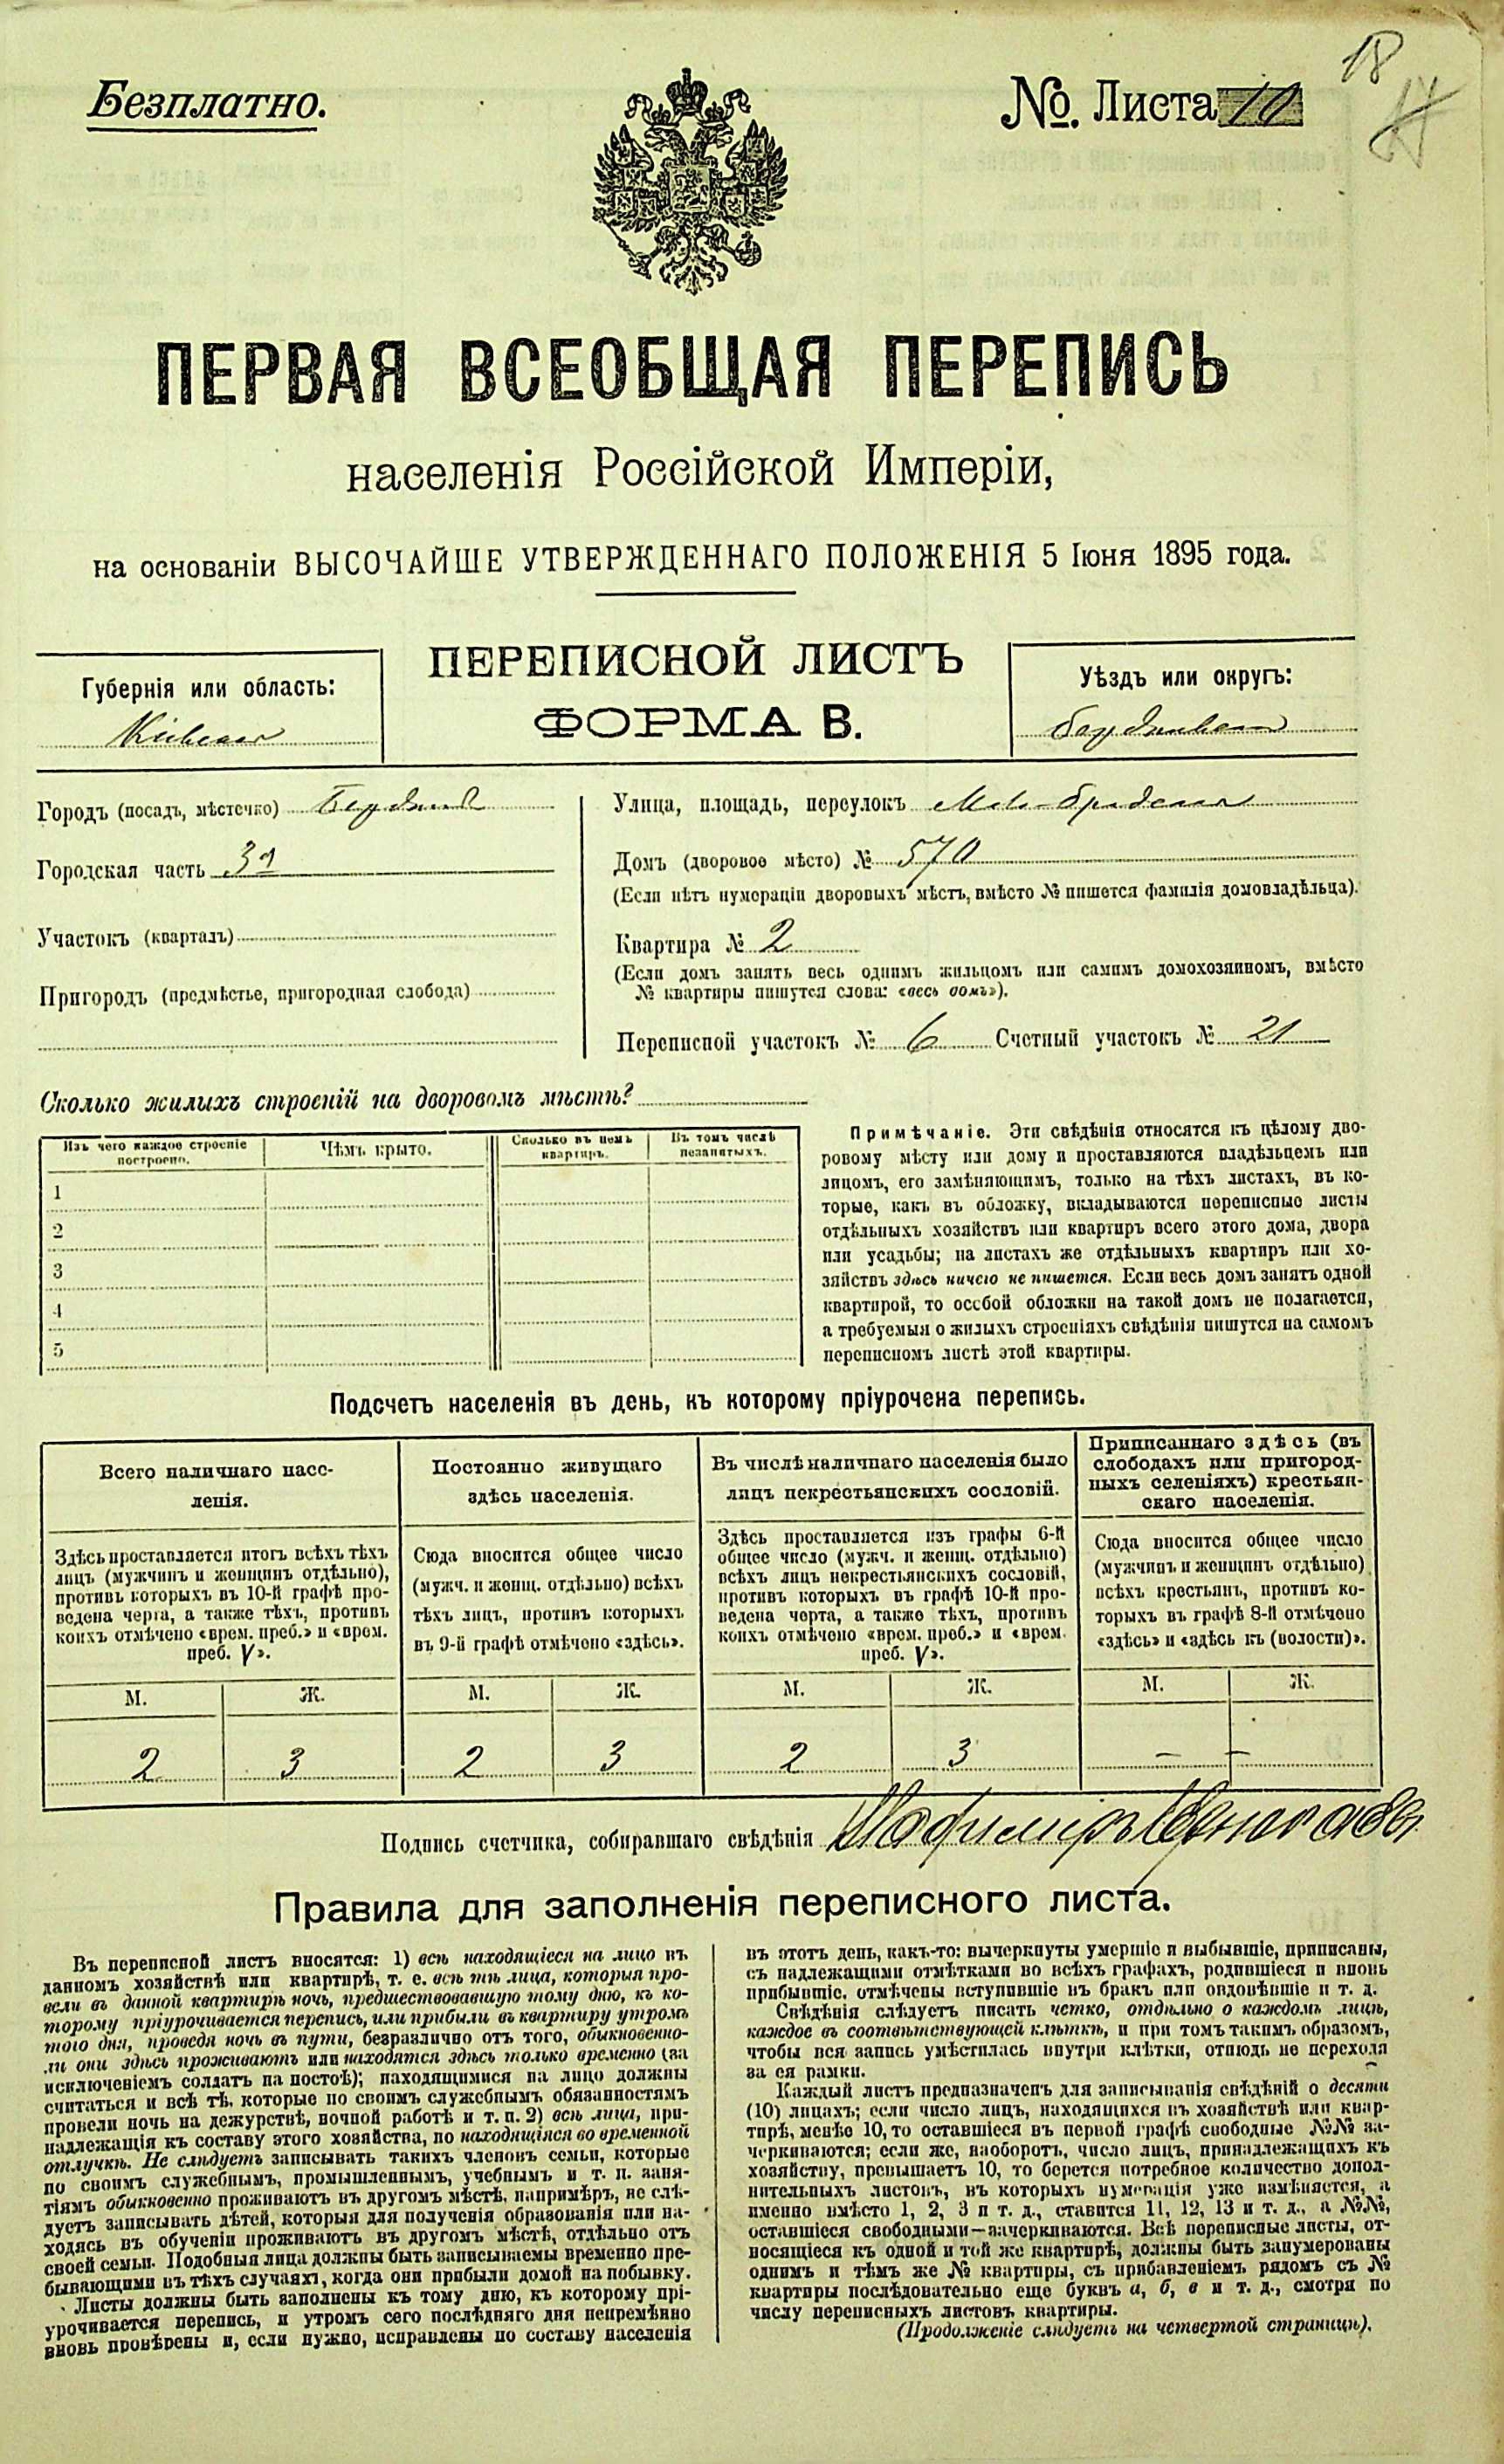 18
17
Безплатно.
№. Листа 10
ПЕРВАЯ ВСЕОБЩАЯ ПЕРЕПИСЬ
населенія Россійской Имперіи,
на основаніи ВЫСОЧАЙШЕ УТВЕРЖДЕННАГО ПОЛОЖЕНІЯ 5 Іюня 1895 года.
ПЕРЕПИСНОЙ ЛИСТЪ
ФОРМА В.
Губернія или область:
Кіевская
Уѣздъ или округъ:
Бердичевскій
Городъ (посадъ, мѣстечко) Бердичев
Городская часть 3я
Участокъ (кварталъ)
Пригородъ (предмѣстье, пригородная слобода)
Улица, площадь, переулокъ
Домъ (дворовое мѣсто) № 570
(Если нѣтъ нумераціи дворовыхъ мѣстъ, вмѣсто № пишется фамилія домовладѣльца).
Квартира № 2
(Если домъ занятъ весь однимъ жильцомъ или самимъ домохозяиномъ, вмѣсто
№ квартиры пишутся слова: «весь домъ»).
Переписной участокъ № 6 Счетный участокъ № 21
Сколько жилыхъ строеній на дворовомъ мѣстѣ?
Изъ чего каждое строеніе построено.
Чѣмъ крыто.
Сколько въ немъ квартиръ.
Въ томъ числѣ незанятыхъ.
1
2
3
4
5
Примѣчаніе. Эти свѣдѣнія относятся къ цѣлому дво-
ровому мѣсту или дому и проставляются владѣльцемъ или
лицомъ, его замѣняющимъ, только на тѣхъ листахъ, въ ко-
торые, какъ въ обложку, вкладываются переписные листы
отдѣльныхъ хозяйствъ или квартиръ всего этого дома, двора
или усадьбы; на листахъ же отдѣльныхъ квартиръ или хо-
зяйствъ здѣсь ничего не пишется. Если весь домъ занятъ одной
квартирой, то особой обложки на такой домъ не полагается,
а требуемыя о жилыхъ строеніяхъ свѣдѣнія пишутся на самомъ
переписномъ листѣ этой квартиры.
Подсчетъ населенія въ день, къ которому пріурочена перепись.
Всего наличнаго насе-
ленія.
Постоянно живущаго
здѣсь населенія.
Въ числѣ наличнаго населенія было
лицъ некрестьянскихъ сословій.
Приписаннаго здѣсь (въ
слободахъ или пригород-
ныхъ селеніяхъ) крестьян-
скаго населенія.
Здѣсь проставляется итогъ всѣхъ тѣхъ
лицъ (мужчинъ и женщинъ отдѣльно),
противъ которыхъ въ 10-й графѣ про-
ведена черта, а также тѣхъ, противъ
коихъ отмѣчено «врем. преб.» и «врем.
преб. V».
Сюда вносится общее число
(мужч. и женщ. отдѣльно) всѣхъ
тѣхъ лицъ, противъ которыхъ
въ 9-й графѣ отмѣчено «здѣсь».
Здѣсь проставляется изъ графы 6-й
общее число (мужч. и женщ. отдѣльно)
всѣхъ лицъ некрестьянскихъ сословій,
противъ которыхъ въ графѣ 10-й про-
ведена черта, а также тѣхъ, противъ
коихъ отмѣчено «врем. преб.» и «врем.
преб. V».
Сюда вносится общее число
(мужчинъ и женщинъ отдѣльно)
всѣхъ крестьянъ, противъ ко-
торыхъ въ графѣ 8-й отмѣчено
«здѣсь» и «здѣсь къ (волости)».
М. Ж. М. Ж. М. Ж. М. Ж.
2 3 2 3 2 3 – –
Подпись счетчика, собиравшаго свѣдѣнія
Правила для заполненія переписного листа.
Въ переписной листъ вносятся: 1) всѣ находящіеся на лицо въ
данномъ хозяйствѣ или квартирѣ, т. е. всѣ тѣ лица, которыя про-
вели въ данной квартирѣ ночь, предшествовавшую тому дню, къ ко-
торому пріурочивается перепись, или прибыли въ квартиру утромъ
того дня, проведя ночь въ пути, безразлично отъ того, обыкновенно-
ли они здѣсь проживаютъ или находятся здѣсь только временно (за
исключеніемъ солдатъ на постоѣ); находящимися на лицо должны
считаться и всѣ тѣ, которые по своимъ служебнымъ обязанностямъ
провели ночь на дежурствѣ, ночной работѣ и т. п. 2) всѣ лица, при-
надлежащія къ составу этого хозяйства, но находящіяся во временной
отлучкѣ. Не слѣдуетъ записывать такихъ членовъ семьи, которые
по своимъ служебнымъ, промышленнымъ, учебнымъ и т. п. заня-
тіямъ обыкновенно проживаютъ въ другомъ мѣстѣ, напримѣръ, не слѣ-
дуетъ записывать дѣтей, которыя для полученія образованія или на-
ходясь въ обученіи проживаютъ въ другомъ мѣстѣ, отдѣльно отъ
своей семьи. Подобныя лица должны быть записываемы временно пре-
бывающими въ тѣхъ случаяхъ, когда они прибыли домой на побывку.
Листы должны быть заполнены къ тому дню, къ которому прі-
урочивается перепись, и утромъ сего послѣдняго дня непремѣнно
вновь провѣрены и, если нужно, исправлены по составу населенія
въ этотъ день, какъ-то: вычеркнуты умершіе и выбывшіе, приписаны,
съ надлежащими отмѣтками во всѣхъ графахъ, родившіеся и вновь
прибывшіе, отмѣчены вступившіе въ бракъ или овдовѣвшіе и т. д.
Свѣдѣнія слѣдуетъ писать четко, отдѣльно о каждомъ лицѣ,
каждое въ соотвѣтствующей клѣткѣ, и при томъ такимъ образомъ,
чтобы вся запись умѣстилась внутри клѣтки, отнюдь не переходя
за ея рамки.
Каждый листъ предназначенъ для записыванія свѣдѣній о десяти
(10) лицахъ; если число лицъ, находящихся въ хозяйствѣ или квар-
тирѣ, менѣе 10, то оставшіеся въ первой графѣ свободные №№ за-
черкиваются; если же, наоборотъ, число лицъ, принадлежащихъ къ
хозяйству, превышаетъ 10, то берется потребное количество допол-
нительныхъ листовъ, въ которыхъ нумерація уже измѣняется, а
именно вмѣсто 1, 2, 3 и т. д., ставится 11, 12, 13 и т. д., а №№,
оставшіеся свободными—зачеркиваются. Всѣ переписные листы, от-
носящіеся къ одной и той же квартирѣ, должны быть занумерованы
однимъ и тѣмъ же № квартиры, съ прибавленіемъ рядомъ съ №
квартиры послѣдовательно еще буквъ а, б, в и т. д., смотря по
числу переписныхъ листовъ квартиры.
(Продолженіе слѣдуетъ на четвертой страницѣ).